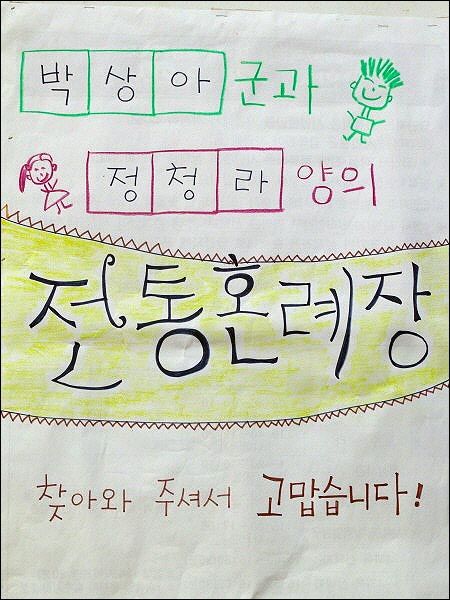 박상아 군과
정청라 양의
전통혼례장
찾아와 주셔서 고맙습니다!